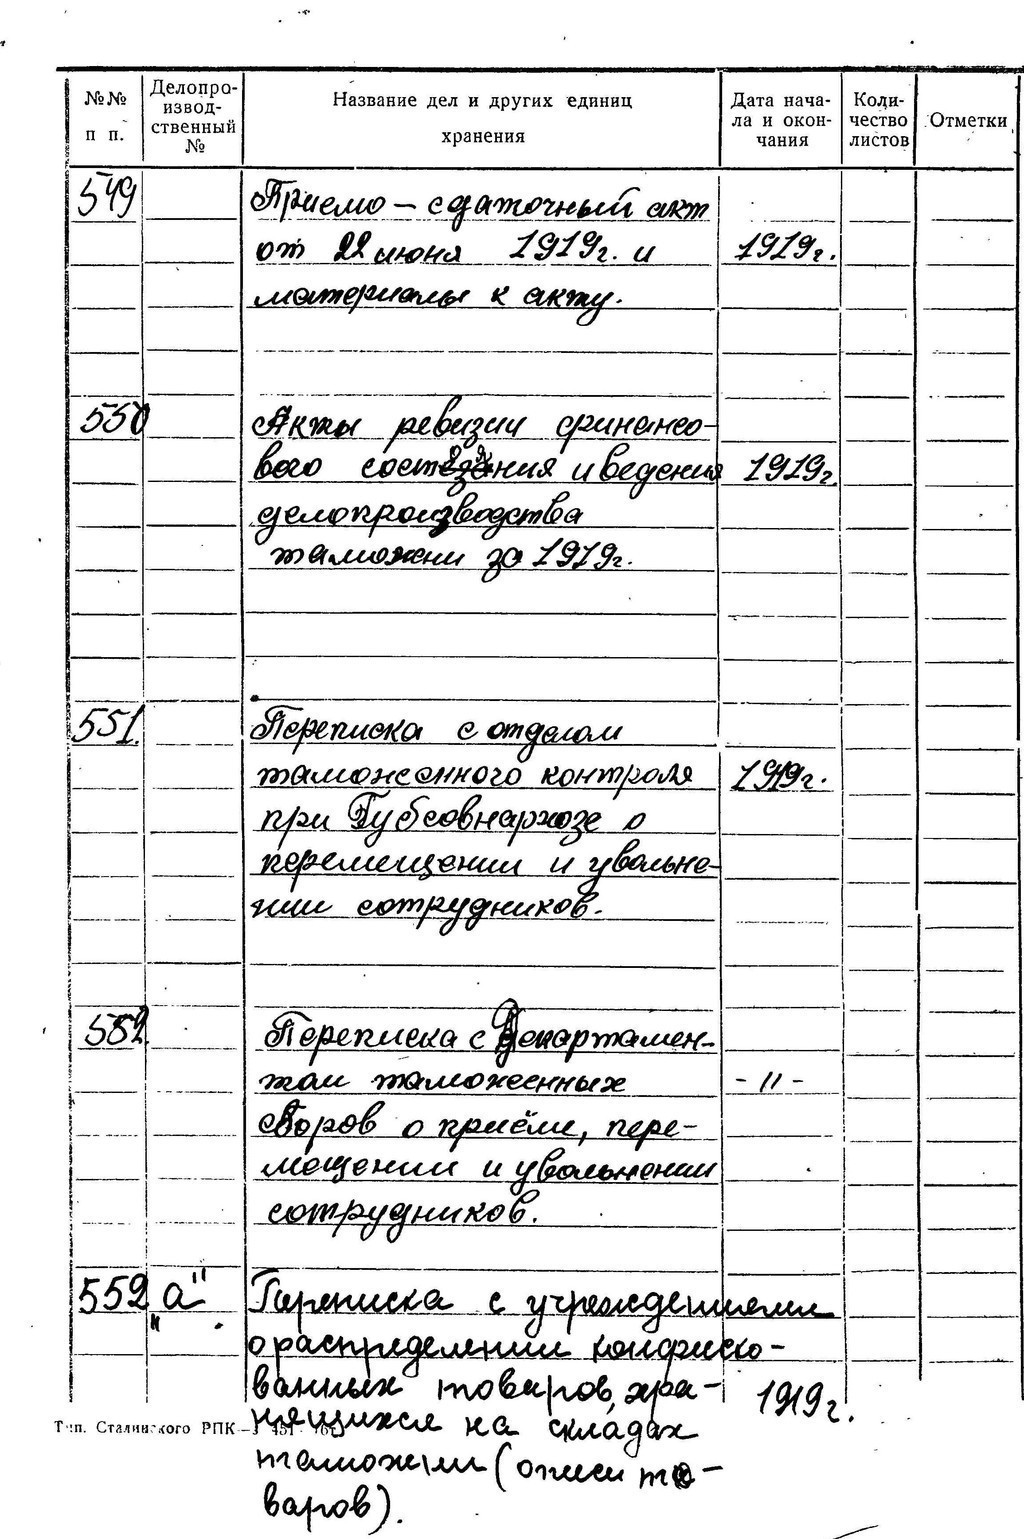 №№ п п. Делопро-извод-ственный № Название дел и других единиц хранения Дата нача-ла и окон-чания Коли-чество листов Отметки
549 Приемо — сдаточный акт
от 22 июня 1919г. и 1919г.
материалы к акту.
550 Акты ревизии финансо-
вого состояния и ведения 1919г.
делопроизводства
таможни за 1919г.
551. Переписка с отделом
таможенного контроля 1919г.
при Губсовнархозе о
перемещении и увольне-
нии сотрудников.
552. Переписка с Департамен-
том таможенных - " -
сборов о приёме, пере-
мещении и увольнении
сотрудников.
552 „а" Переписка с учреждениями
о распределении конфиско-
ванных товаров, хра- 1919г.
нящихся на складах
таможни (описи то-
варов).
Тип. Сталинского РПК